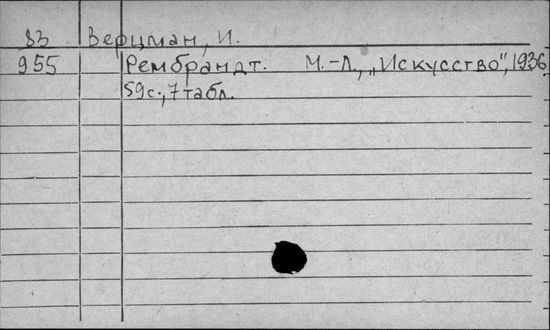 83 Верцман, И.
955 Рембрандт. М.-Л., „Искусство", 1936
59с., 7 табл.